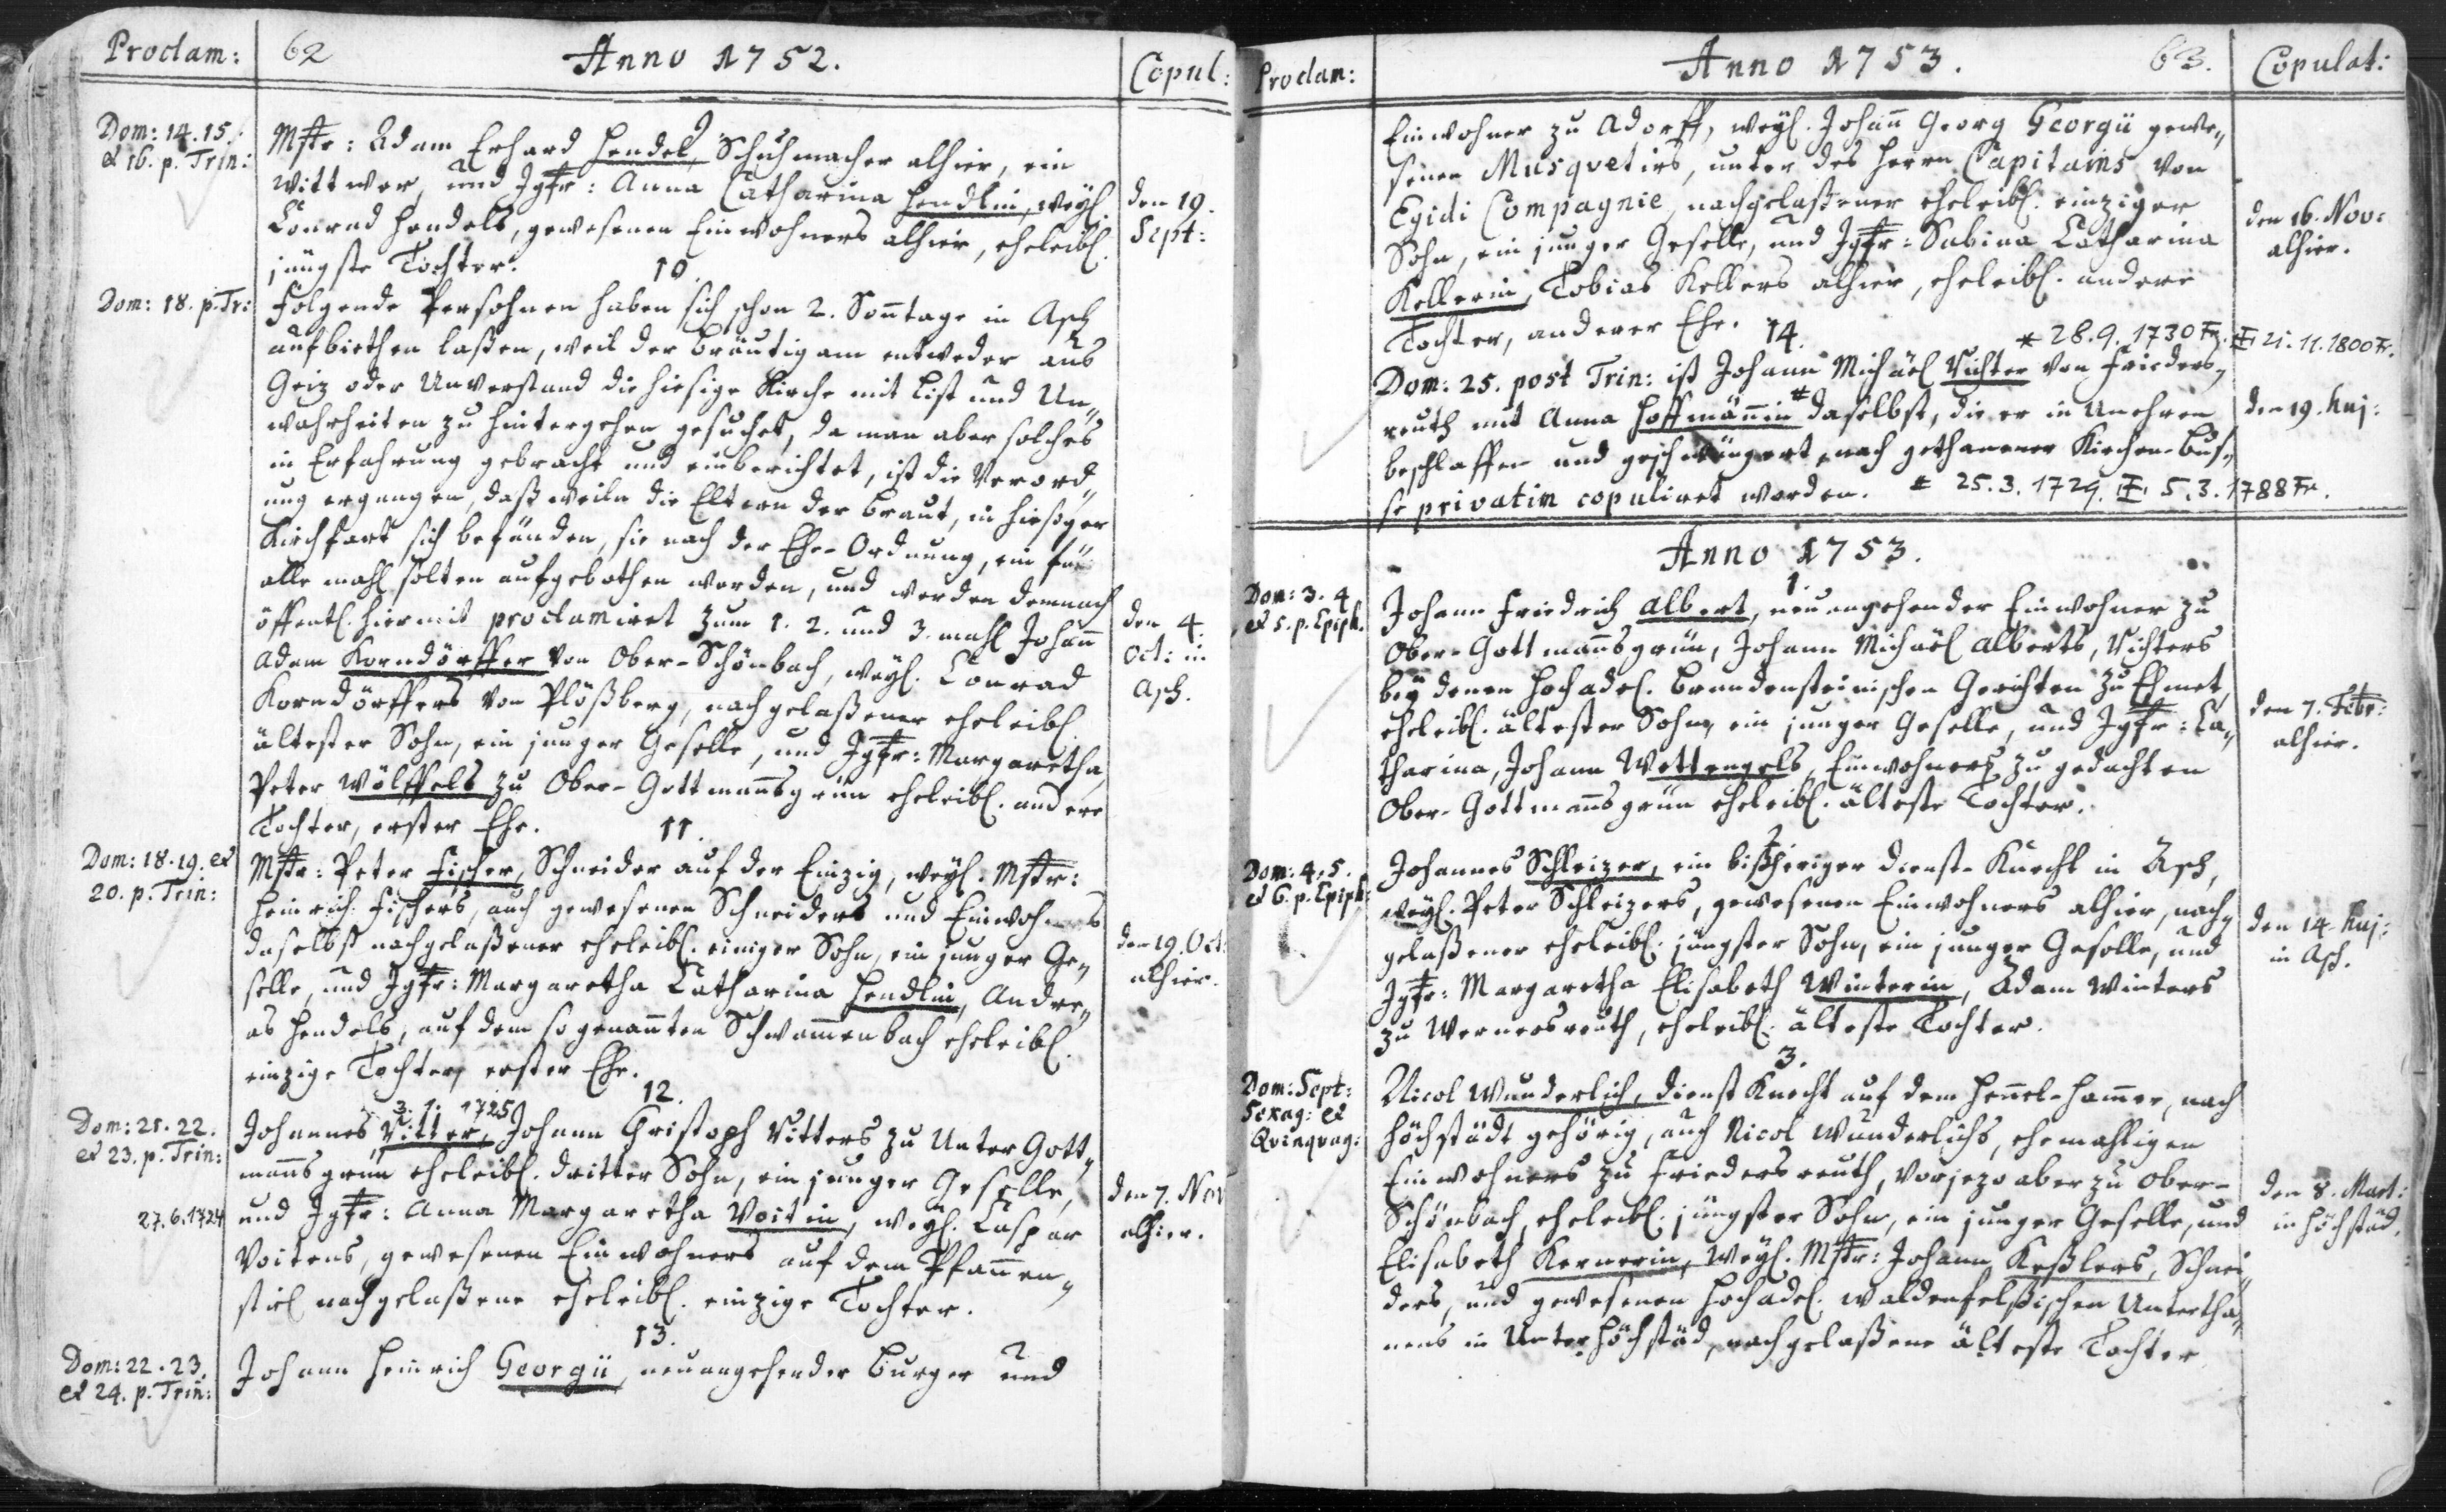 Proclam: 62 Anno 1752. Copul:
9.
Dom: 14. 15.
et 16. p. Trin:
Mstr: Adam Erhard Hendel, Schuhmacher alhier, ein
Wittwer, und Jgfr: Anna Catharina Hendlin, weyl.
Conrad Hendels, gewesenen Einwohners alhier, eheleibl.
jüngste Tochter.
den 19.
Sept:
10.
Dom: 18. p. Tr:
Folgende Persohnen haben sich schon 2. Sonntage in Asch
aufbiethen laßen, weil der Bräutigam entweder aus
Geiz oder Unverstand die hiesige Kirche mit List und Un-
wahrheiten zu hintergehen gesuchet, da man aber solches
in Erfahrung gebracht und einberichtet, ist die Verord-
nung ergangen, daß weiln die Eltern der Braut, in hießger
Kirchfart sich befänden, sie nach der Ehe-Ordnung, ein für
alle mahl solten aufgebothen werden, und werden demnach
öffentl. hiermit proclamiret zum 1. 2. und 3. mahl Johann
Adam Korndörffer von Ober-Schönbach, weyl. Conrad
Korndörffers von Plößberg, nachgelaßener eheleibl.
ältester Sohn, ein junger Geselle, und Jgfr: Margaretha,
Peter Wölffels zu Ober-Gottmannsgrün eheleibl. andere
Tochter, erster Ehe.
den 4.
Oct: in
Asch.
11.
Dom: 18. 19. et
20. p. Trin:
Mstr: Peter Fischer, Schneider auf der Einzig, weyl. Mstr:
Heinrich Fischers, auch gewesenen Schneiders und Einwohners
daselbst nachgelaßener eheleibl. einiger Sohn, ein junger Ge-
selle, und Jgfr: Margaretha Catharina Hendlin, Andre-
as Hendels, auf dem so genannten Schwammenbach eheleibl.
einzige Tochter, erster Ehe.
den 19. Oct:
alhier.
12.
Dom: 21. 22.
et 23. p. Trin:
27. 6. 1724
3. 1. 1725
Johannes Ritter, Johann Christoph Ritters zu Unter Gott-
mannsgrün eheleibl. dritter Sohn, ein junger Geselle,
und Jgfr: Anna Margaretha Voitin, weyl. Caspar
Voitens, gewesenen Einwohners auf dem Pfannen-
stiel nachgelaßene eheleibl. einzige Tochter.
den 7. Nov
alhier.
13.
Dom: 22. 23.
et 24. p. Trin:
Johann Heinrich Georgii, neuangehender Burger und
Proclam: Anno 1753. 63. Copulat:
Einwohner zu Adorff, weyl. Johann Georg Georgii gewe-
senen Musquetirs, unter des Herrn Capitains von
Egidi Compagnie, nachgelaßener eheleibl. einziger
Sohn, ein junger Geselle, und Jgfr: Sabina Catharina
Kellerin, Tobias Kellers alhier, eheleibl. andere
Tochter, anderer Ehe.
den 16. Nov:
alhier.
14.
* 28. 9. 1730 Fr. 21. 11. 1800 Fr.
Dom: 25. post Trin: ist Johann Michäel Richter von Frieders-
reuth mit Anna Hoffmännin * daselbst, die er in Unehren
beschlaffen und geschwängert, nach gethanener Kirchen-Bus-
se privatim copuliret worden. * 25. 3. 1729. 5. 3. 1788 Fr.
den 19. huj:
Anno 1753.
1.
Dom: 3. 4.
et 5. p. Epiph.
Johann Friedrich Albert, neu angehender Einwohner zu
Ober-Gottmannsgrün, Johann Michäel Alberts, Richters
bey denen Hochadel. Brandensteinischen Gerichten zu
eheleibl. ältester Sohn, ein junger Geselle, und Jgfr: Ca-
tharina, Johann Wettengels, Einwohners zu gedachten
Ober-Gottmannsgrün eheleibl. älteste Tochter.
den 7. Febr:
alhier.
2.
Dom: 4. 5.
et 6. p. Epiph:
Johannes Schleizer, ein bißheriger Dienst-Knecht in Asch,
weyl. Peter Schleizers, gewesenen Einwohners alhier, nach-
gelaßener eheleibl. jüngster Sohn, ein junger Geselle, und
Jgfr: Margaretha Elisabeth Winterin, Adam Winters
zu Wernersreuth, eheleibl. älteste Tochter.
den 14. huj:
in Asch.
3.
Dom: Sept:
Sexag: et
Qvinqvag:
Nicol Wunderlich, Dienst Knecht auf dem Hennel-Hammer, nach
Höchstädt gehörig, auch Nicol Wunderlichs, ehemahligen
Einwohners zu Friedersreuth, vorjezo aber zu Ober-
Schönbach, eheleibl. jüngster Sohn, ein junger Geselle, und
Elisabeth Kernerin, weyl. Mstr: Johann Keßlers, Schnei-
ders, und gewesenen Hochadel. Waldenfelßischen Untertha-
nens in Unterhöchstäd, nachgelaßene älteste Tochter
den 8. Mart:
in Höchstäd.